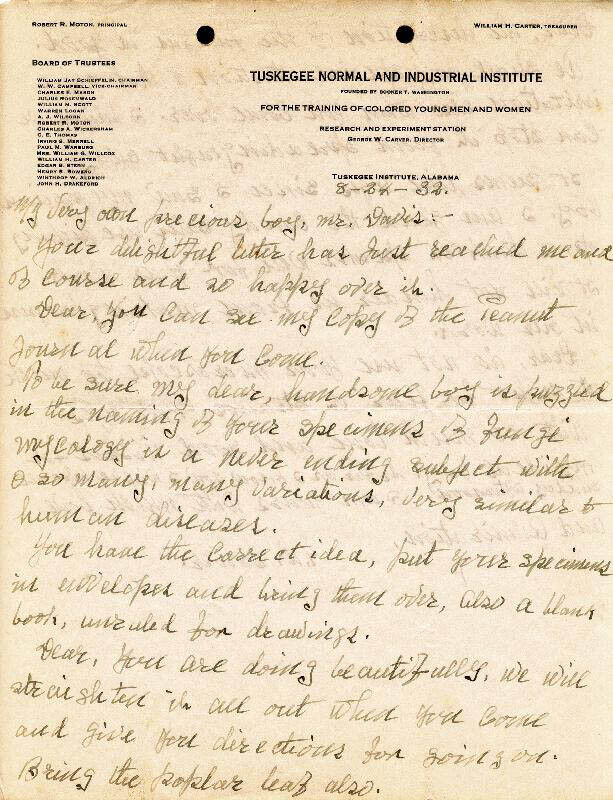 ROBERT R. MOTON, PRINCIPAL
WILLIAM H. CARTER, TREASURER
BOARD OF TRUSTEES
WILLIAM JAY SCHIEFFELIN, CHAIRMAN
W. W. CAMPBELL, VICE-CHAIRMAN
CHARLES E. MASON
JULIUS ROSENWALD
WILLIAM M. SCOTT
WARREN LOGAN
A. J. WILBORN
ROBERT R. MOTON
CHARLES A. WICKERSHAM
C. E. THOMAS
IRVING S. MERRELL
PAUL M. WARBURG
MRS. WILLIAM G. WILLCOX
WILLIAM H. CARTER
EDGAR B. STERN
HENRY S. BOWERS
WINTHROP W. ALDRICH
JOHN H. DRAKEFORD
TUSKEGEE NORMAL AND INDUSTRIAL INSTITUTE
FOUNDED BY BOOKER T. WASHINGTON
FOR THE TRAINING OF COLORED YOUNG MEN AND WOMEN
RESEARCH AND EXPERIMENT STATION
GEORGE W. CARVER, DIRECTOR
TUSKEGEE INSTITUTE, ALABAMA
My very own precious boy, Mr. Davis:-
Your delightful letter has just reached me and
of course and so happy over it.
Dear, you can see my copy of the Peanut
Journal when you come.
To be sure my dear, handsome boy is puzzled
in the naming of your specimens of fungi
mycology is a never ending subject with
so many, many variations, very similar to
human diseases.
You have the correct idea, put your specimens
in envelopes and bring them over, also a blank
book, unruled for drawings.
Dear, you are doing beautifully, we will
straighten it all out when you come
and give you directions for going on.
Bring the poplar leaf also.